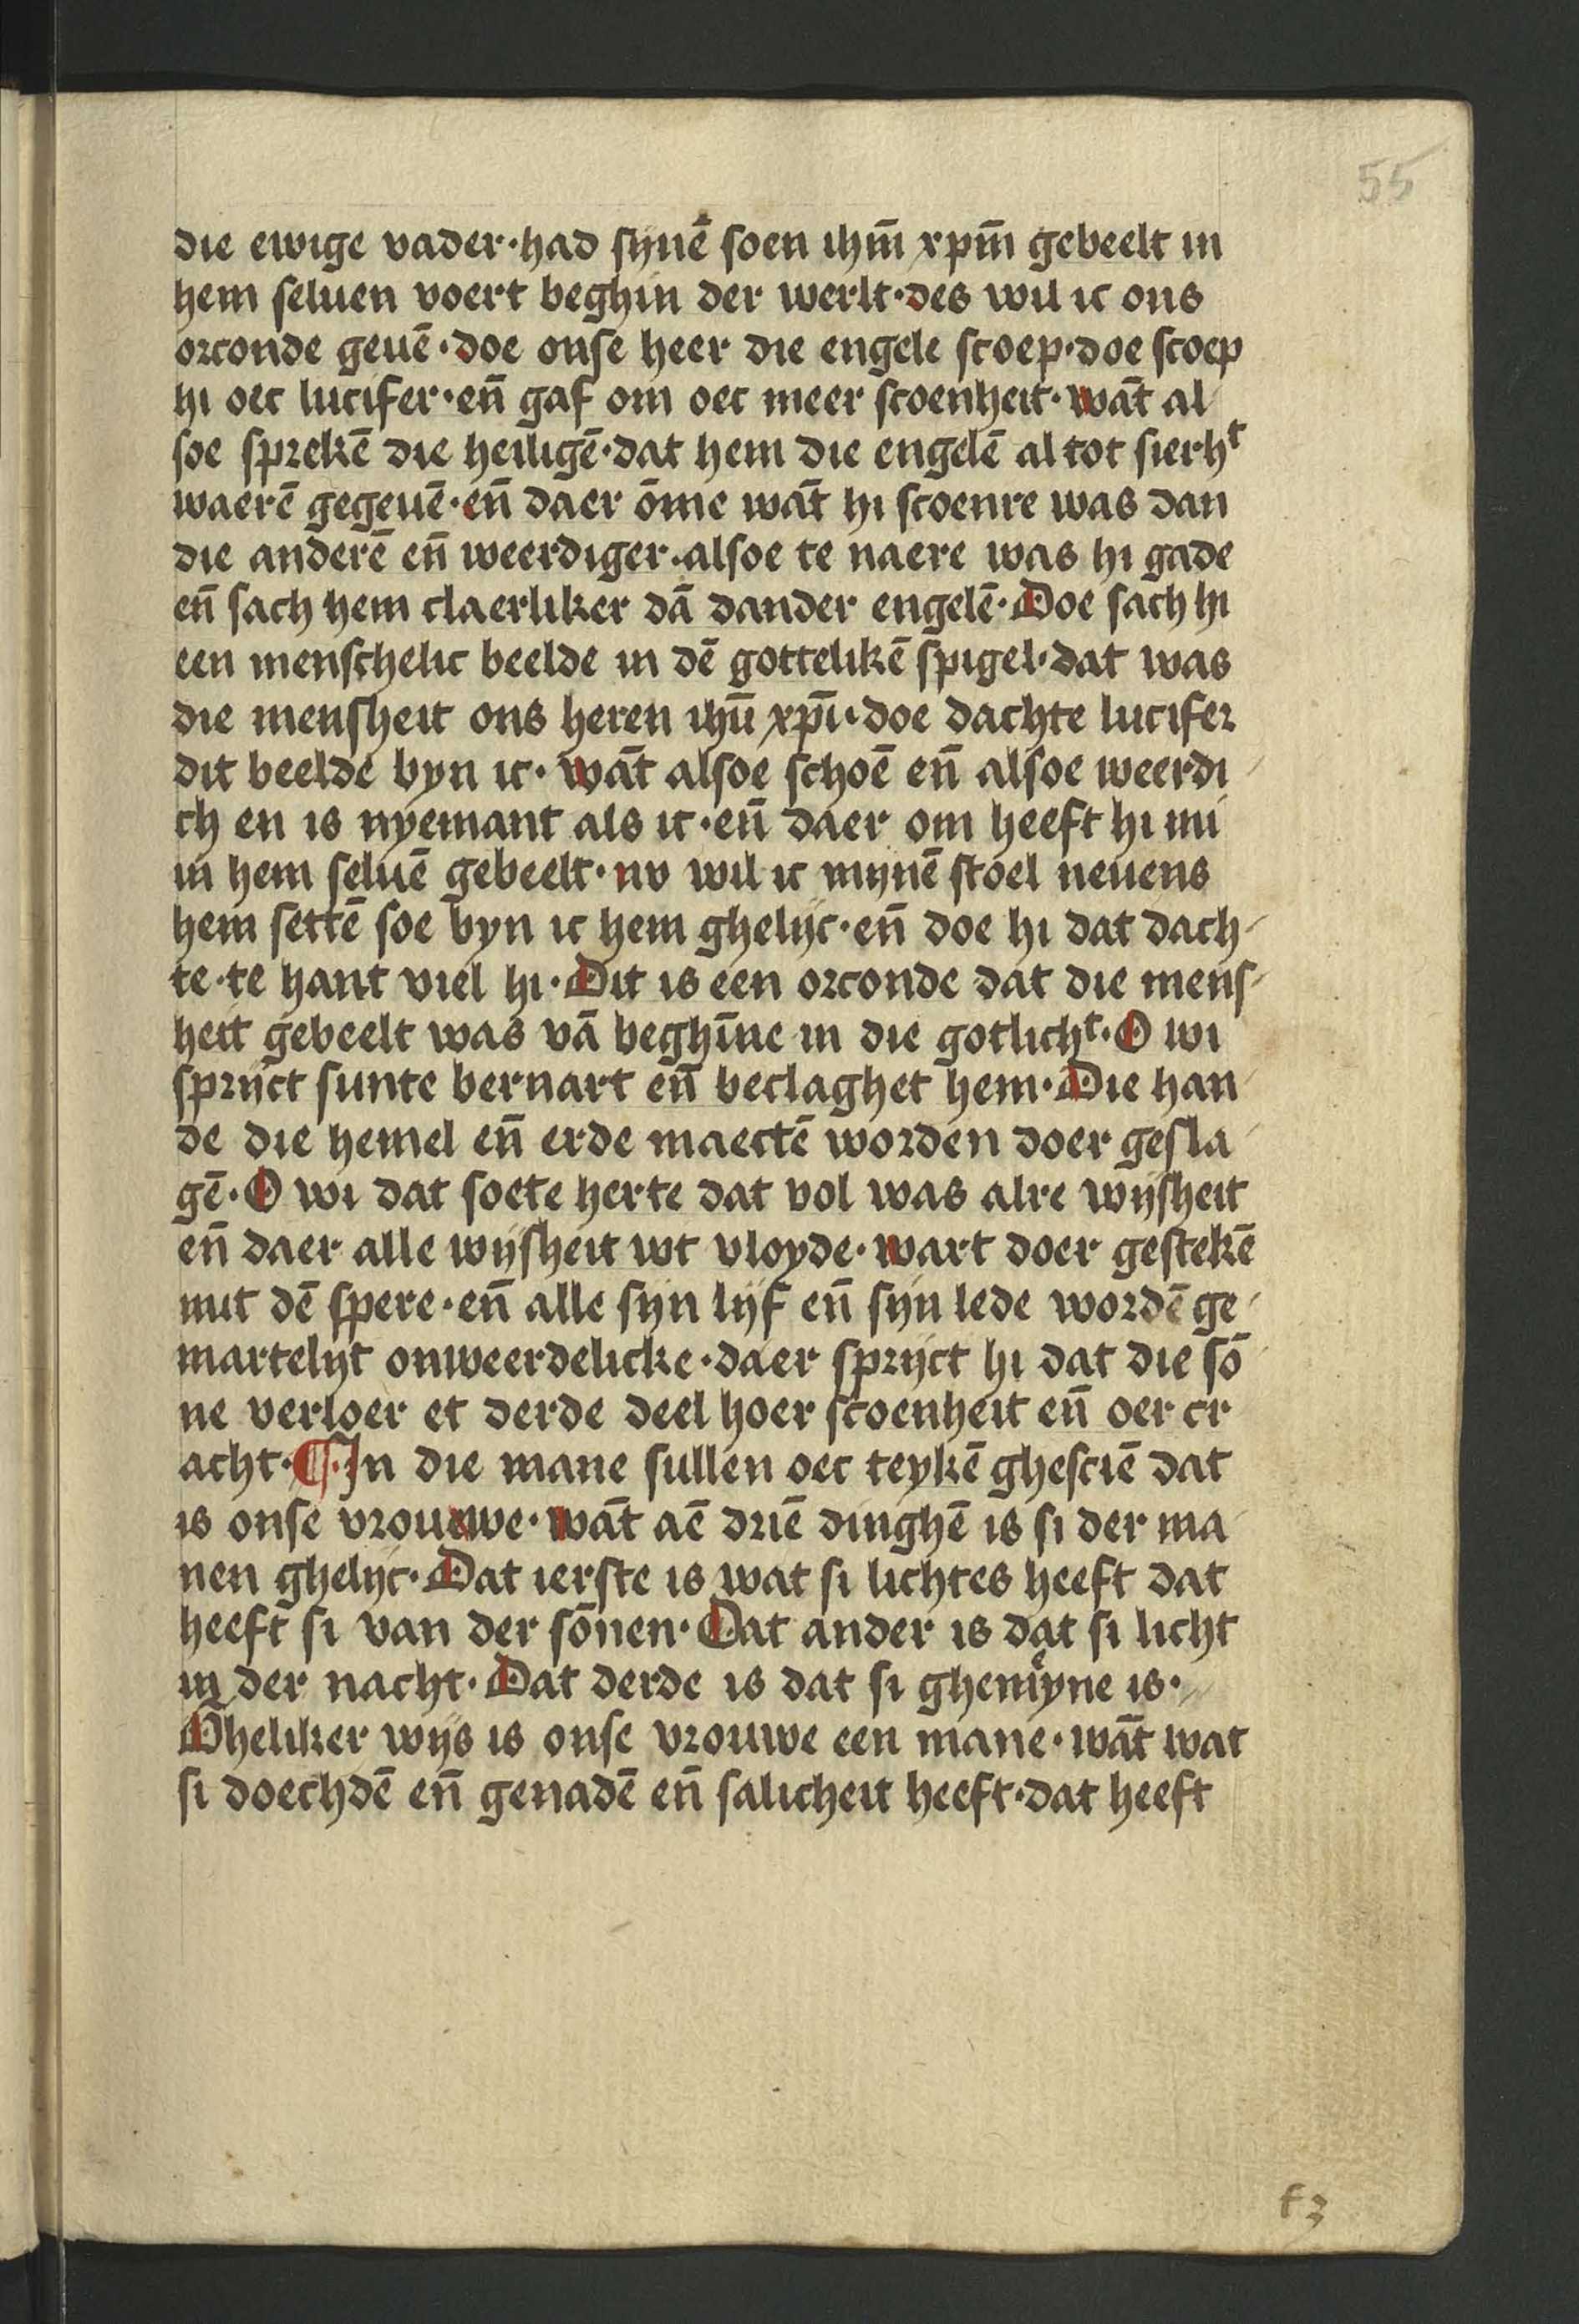 55
die ewige vader·had sijnē soen ihm̄ xpm̄ gebeelt in
hem seluen voert beghin der werlt·des wil ic ons
orconde geuē·doe onse heer die engele scoep·doe scoep
hi oec lucifer·en̄ gaf om oec meer scoenheit·wāt al
soe sprekē die heiligē·dat hem die engelē al tot sierhᵗ
waerē gegeuē·en̄ daer ōme wāt hi scoenre was dan
die anderē en̄ weerdiger·alsoe te naere was hi gade
en̄ sach hem claerliker dā dander engelē·Doe sach hi
een menschelic beelde in dē gottelikē spigel·dat was
die mensheit ons heren ihū xpī·doe dachte lucifer
dit beelde byn ic·wāt alsoe schoē en̄ alsoe weerdi
ch en is nyemant als ic·en̄ daer om heeft hi mi
in hem seluē gebeelt·nv wil ic mijnē stoel neuens
hem settē soe byn ic hem ghelijc·en̄ doe hi dat dach-
te·te hant viel hi·Dit is een orconde dat die mens-
heit gebeelt was vā beghīne in die gotlichᵗ·O wi
sprijct sunte bernart en̄ beclaghet hem·Die han
de die hemel en̄ erde maectē worden doer gesla
gē·O wi dat soete herte dat vol was alre wijsheit
en̄ daer alle wijsheit wt vloyde·wart doer gestekē
mit dē spere·en̄ alle sijn lijf en̄ sijn lede wordē ge
martelijt onweerdelicke·daer sprijct hi dat die sō
ne verloer et derde deel hoer scoenheit en̄ oer cr
acht·¶·In die mane sullen oec teykē ghesciē dat
is onse vrouwe·wāt aē driē dinghē is si der ma
nen ghelijc·Dat ierste is wat si lichtes heeft dat
heeft si van der sōnen·Dat ander is dat si licht
in der nacht·Dat derde is dat si ghemeyne is·
Gheliker wijs is onse vrouwe een mane·wāt wat
si doechdē en̄ genadē en̄ salicheit heeft·dat heeft
f3